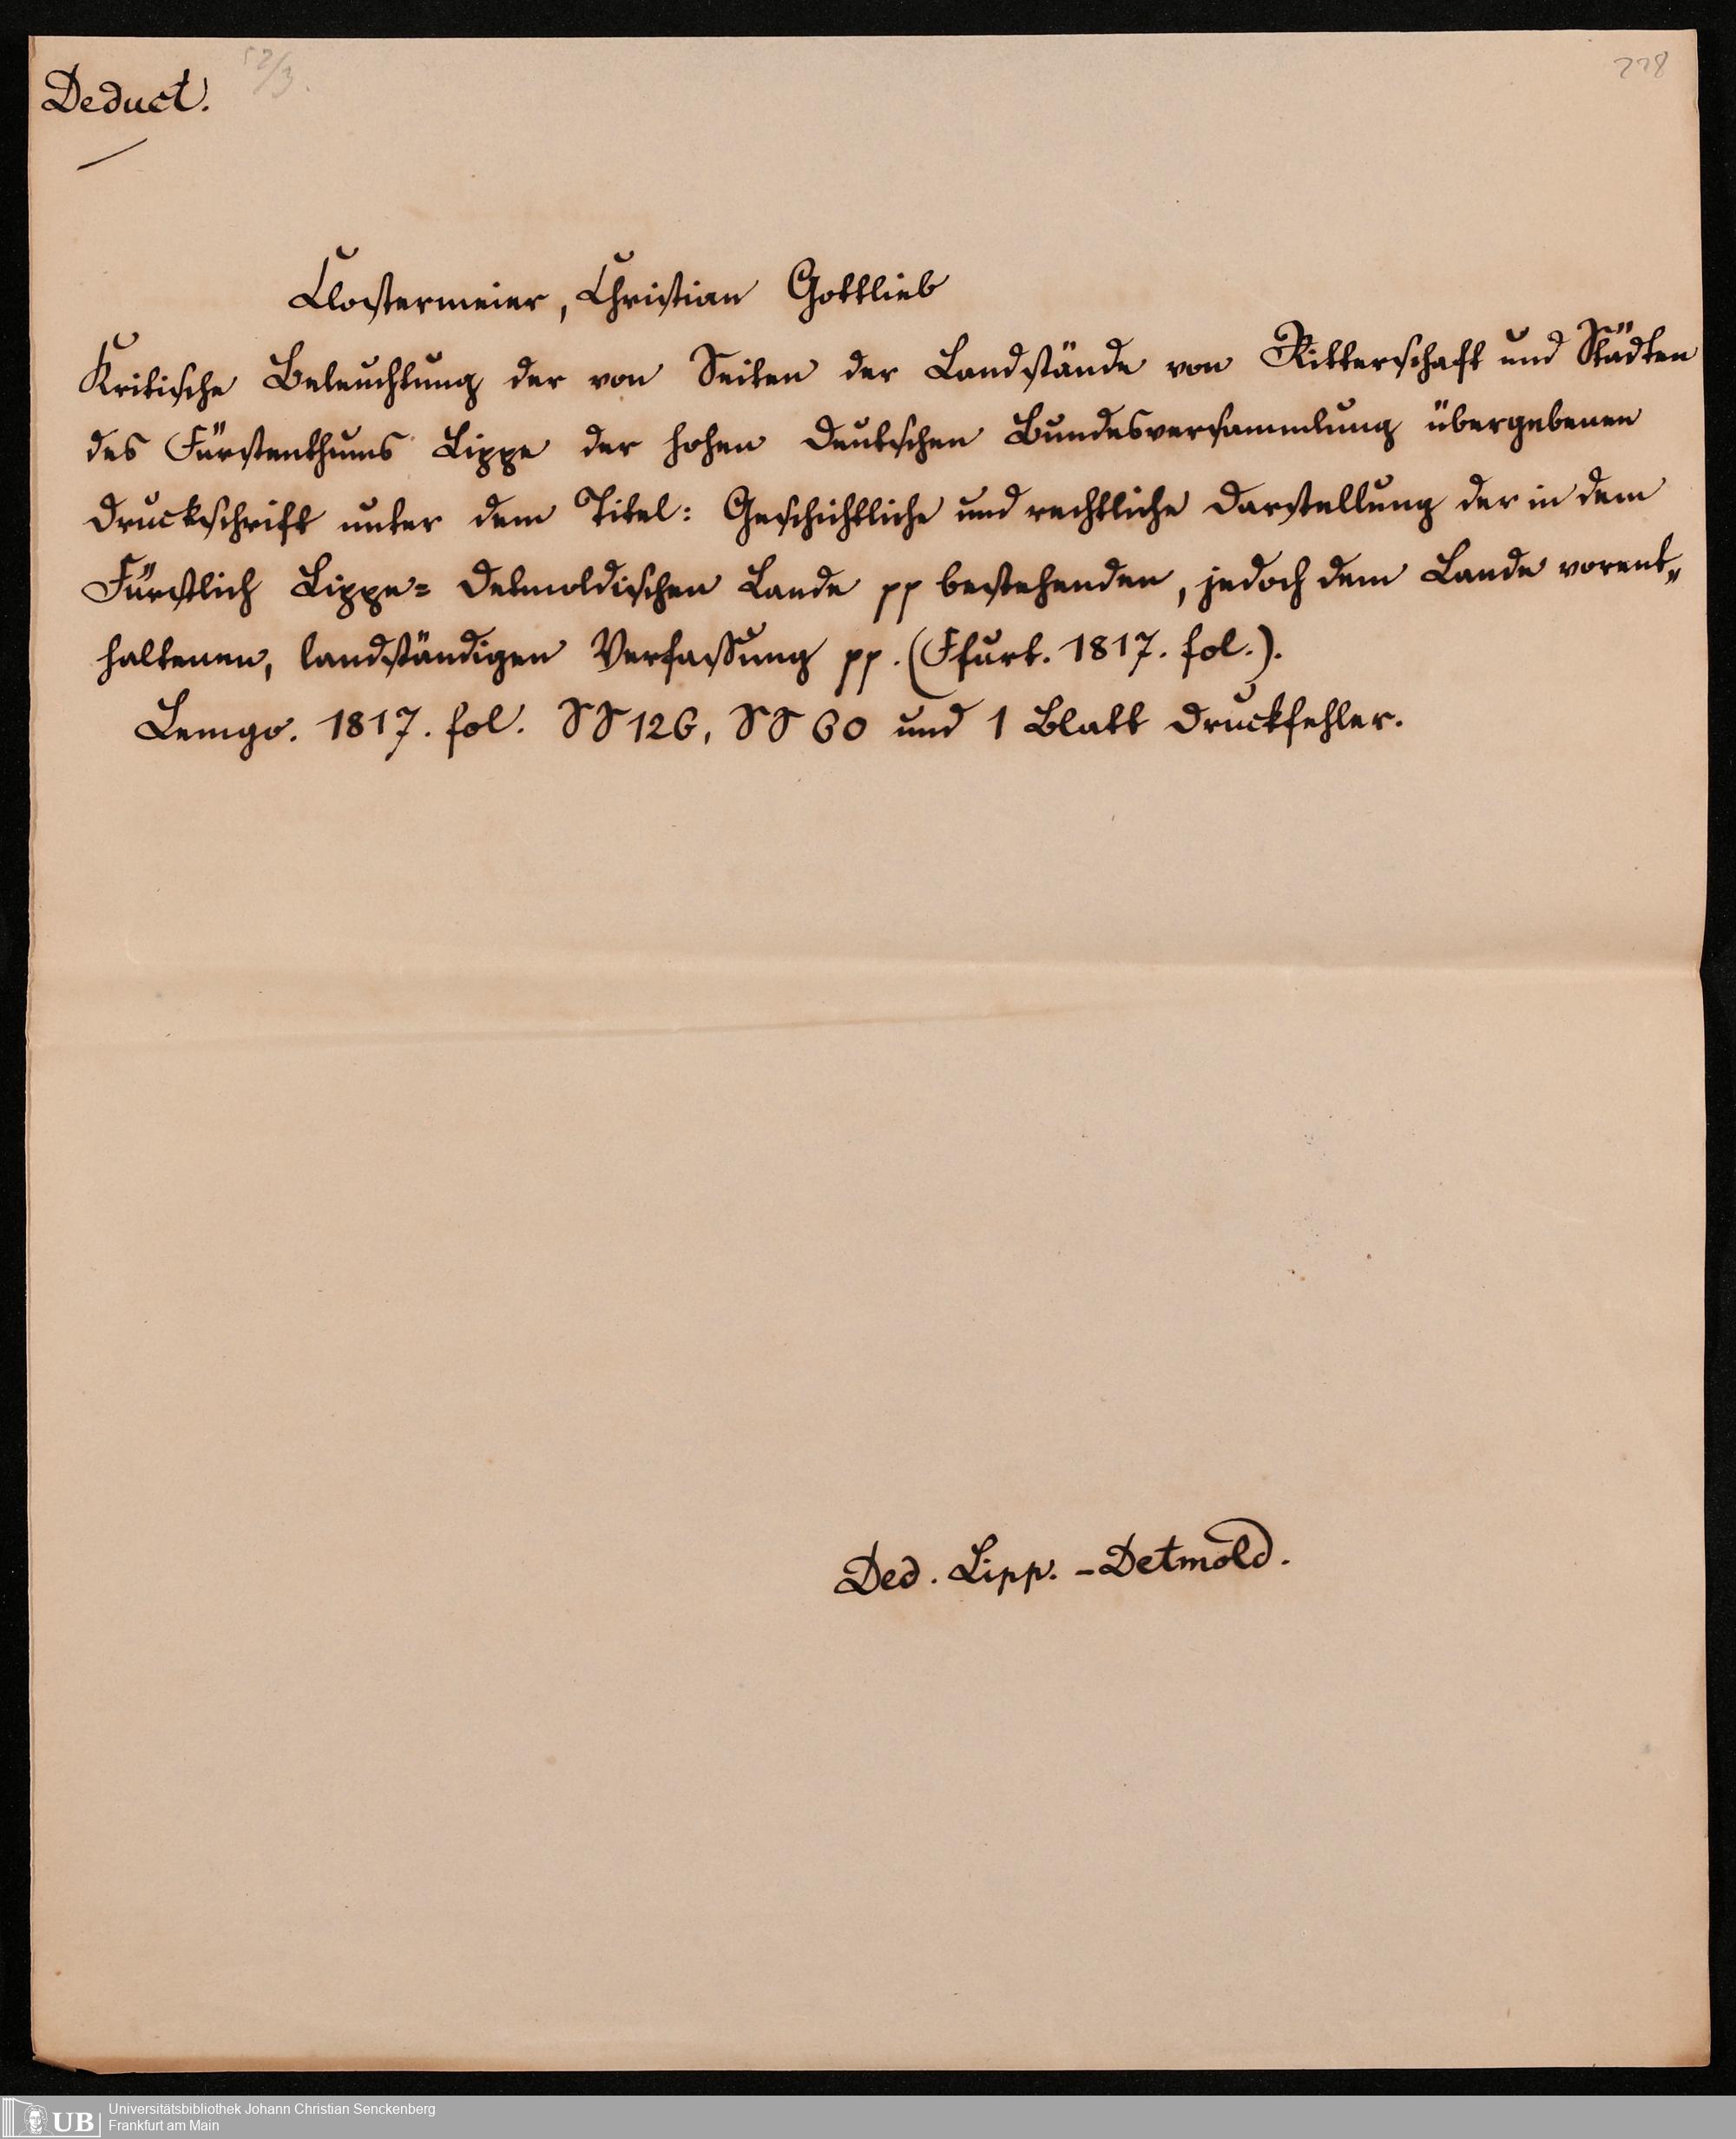 Deduct.
52/3.
228
Clostermeier, Christian Gottlieb
Kritische Beleuchtung der von Seiten der Landstände von Ritterschaft und Städten
des Fürstenthums Lippe der hohen Deutschen Bundesversammlung übergebenen
Druckschrift unter dem Titel: Geschichtliche und rechtliche Darstellung der in dem
Fürstlich Lippe= Detmoldischen Lande pp bestehenden, jedoch dem Lande vorent„
haltenen, landständigen Verfassung pp. (Ffurt. 1817. fol.).
Lemgo. 1817. fol. SS 126, SS 60 und 1 Blatt Druckfehler.
Ded. Lipp. - Detmold.
UB
Universitätsbibliothek Johann Christian Senckenberg
Frankfurt am Main